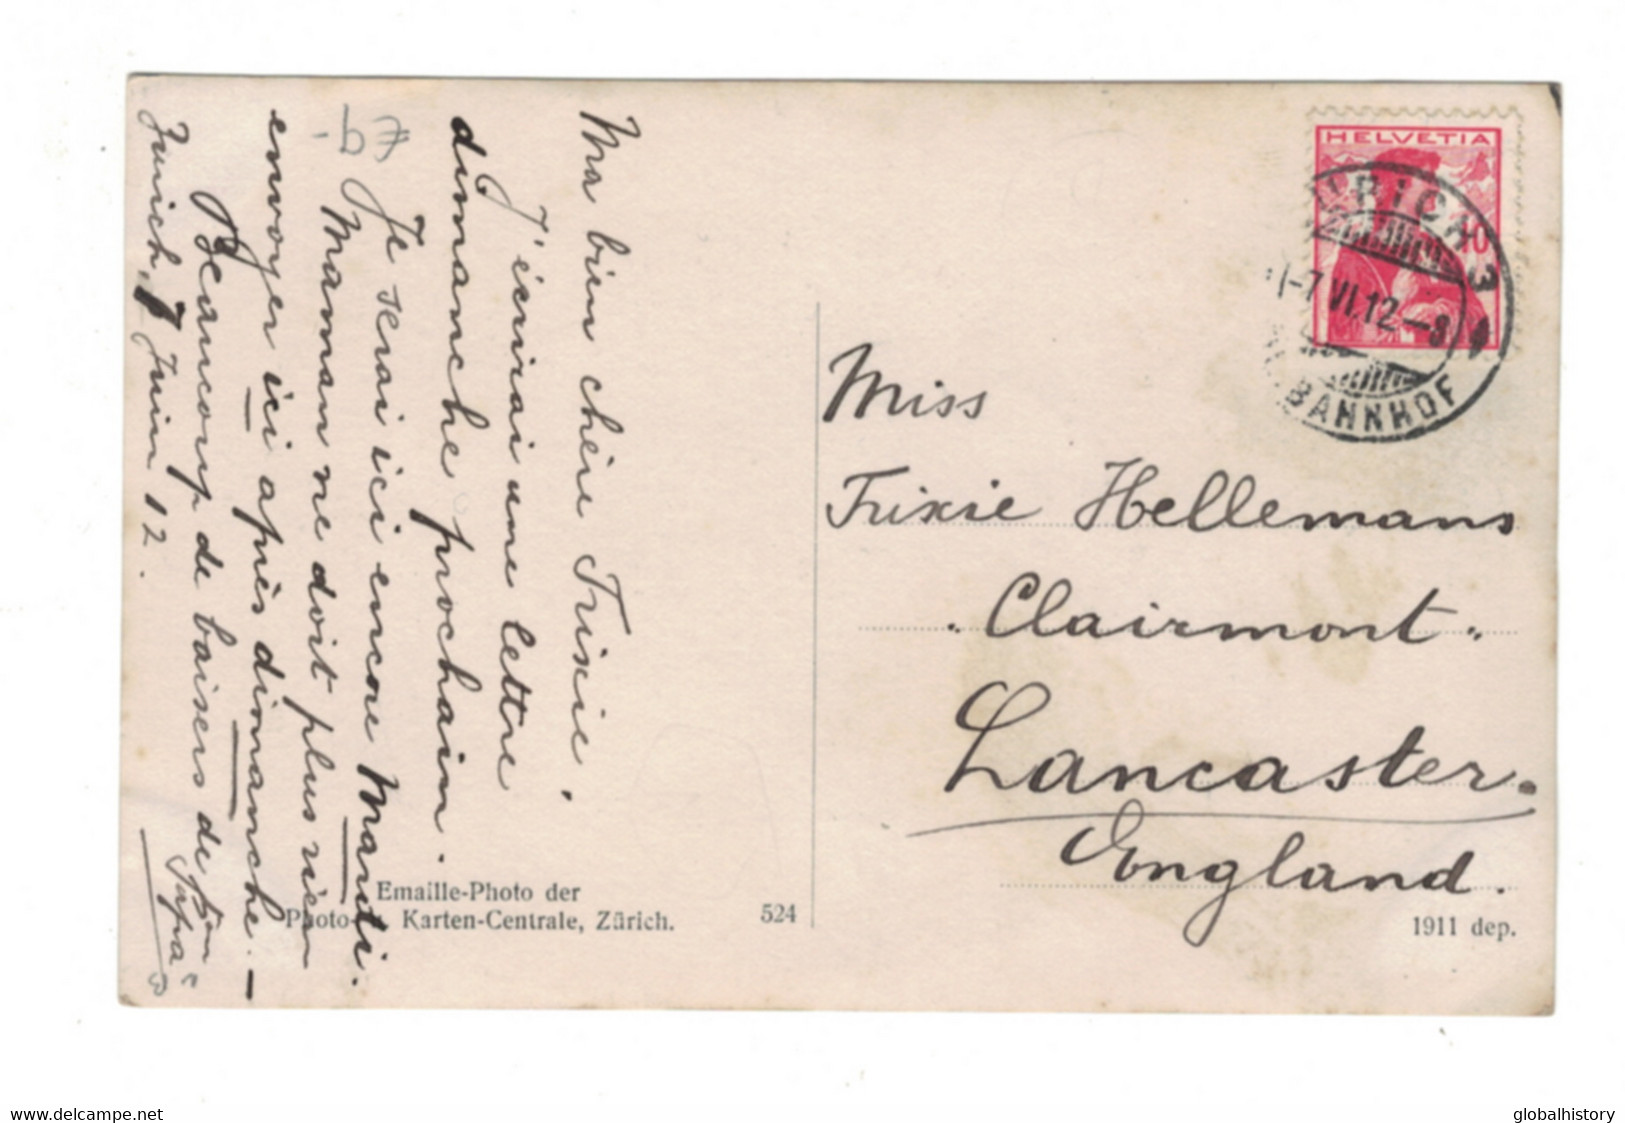 Ma bien chère Trixie.
J'écrirai une lettre
dimanche prochain.
Je serai ici encore Mardi.
Maman ne doit plus rien
envoyer ici après dimanche. —
Beaucoup de baisers de ton
Papa
Zurich, 7 Juin 12.
£9-
Emaille-Photo der
Photo- Karten-Centrale, Zürich.
524
HELVETIA
10
ZÜRICH
-7.VI.12.-8
BAHNHOF
Miss
Trixie Hellemans
"Clairmont"
Lancaster.
England.
1911 dep.
www.delcampe.net
globalhistory